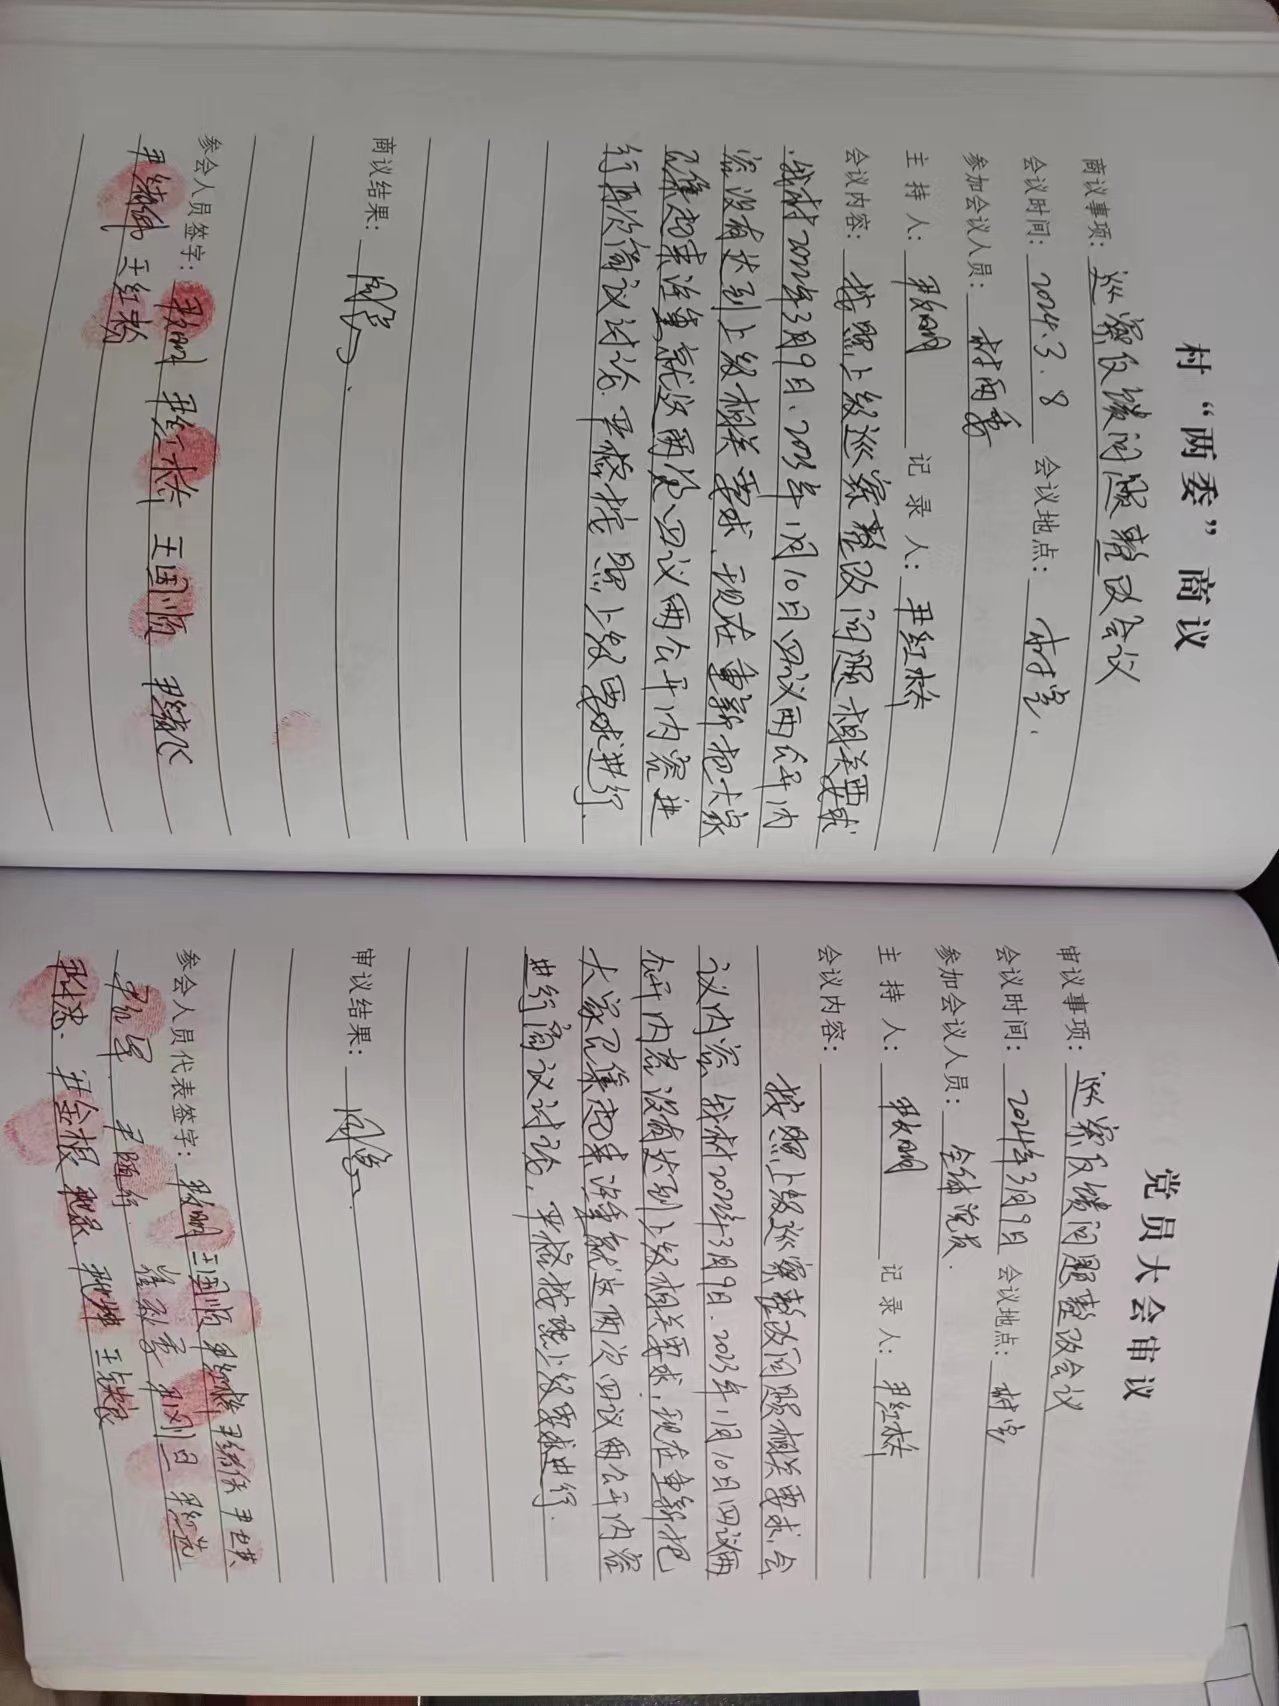 村“两委”商议
商议事项：巡察反馈问题整改会议
会议时间：2024.3.8 会议地点：村室.
参加会议人员：村两委
主持人： 记录人：尹红
会议内容：按照上级巡察整改问题相关要求
.我村2022年3月9日、2023年1月10日四议两公开内
容没有达到上级相关要求,现在重新把大家
召集起来,注重就这两次四议两公开内容进
行再次商议讨论.严格按照上级要求进行.
商议结果：同意.
参会人员签字： 王国顺
王红
党员大会审议
审议事项：巡察反馈问题整改会议
会议时间：2024年3月9日 会议地点：村室
参加会议人员：全体党员.
主持人： 记录人：尹红
会议内容：
按照上级巡察整改问题相关要求,会
议内容 我村2022年3月9日.2023年1月10日四议两
公开内容没有达到上级相关要求,现在重新把
大家召集起来注重就这两次四议两公开内容
进行商议讨论,严格按照上级要求进行.
审议结果：同意.
参会人员代表签字： 王国顺
尹刚
尹金根